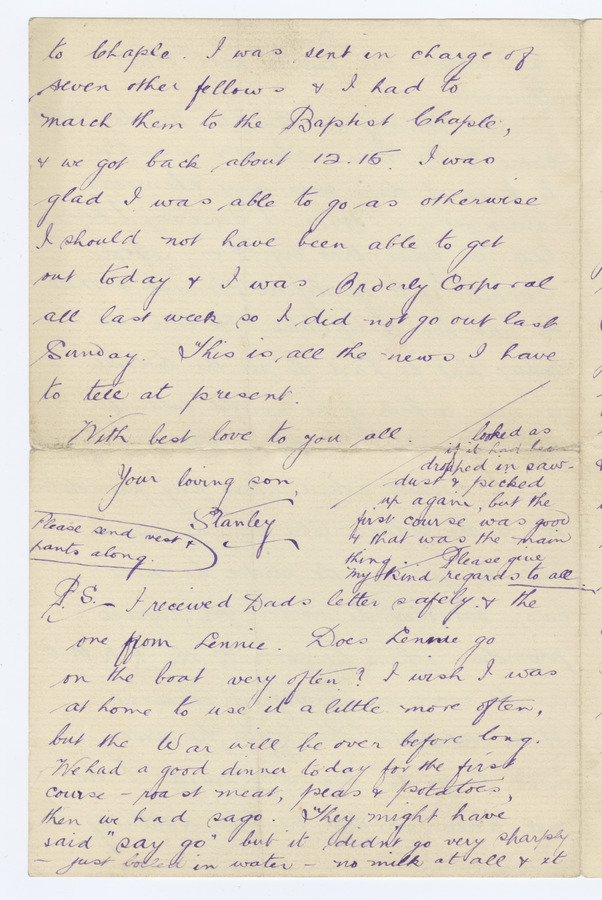 to Chaple. I was sent in charge of
seven other fellows & I had to
march them to the Baptist Chaple,
& we got back about 12.15. I was
glad I was able to go as otherwise
I should not have been able to get
out today & I was Orderly Corporal
all last week so I did not go out last
Sunday. This is all the news I have
to tell at present.
With best love to you all.
Your loving son,
Stanley
Please send vest &
pants along.
P.S. – I received Dads letter safely & the
one from Lennie. Does Lennie go
on the boat very often? I wish I was
at home to use it a little more often,
but the War will be over before long.
We had a good dinner today for the first
course – roast meat, peas & potatoes,
then we had sago. They might have
said "say go" but it didn't go very sharply
– just boiled in water – no milk at all & it
looked as
if it had been
dropped in saw-
dust & picked
up again, but the
first course was good
& that was the main
thing. Please give
my kind regards to all